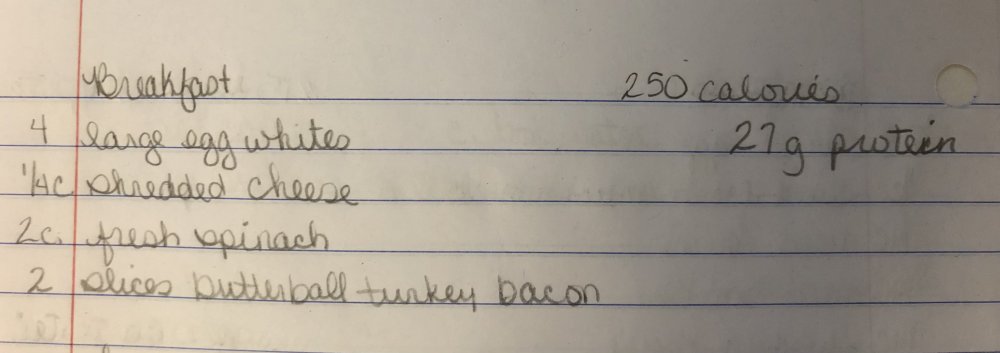 Breakfast 250 calories
4 large egg whites 27g protein
1/4c shredded cheese
2c. fresh spinach
2 slices butterball turkey bacon